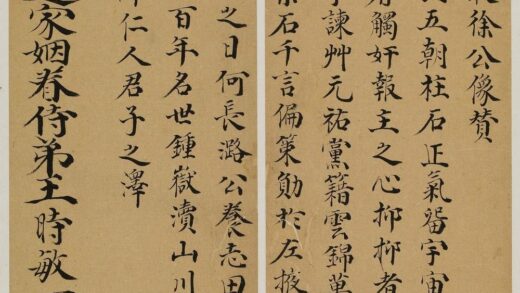 徐公像贊
五朝柱石正氣畱宇宙
觸奸報主之心抑抑者
諫艸元祐黨籍雲錦萬
石千言偏策勛於左掖
之日何長潞公養志田
百年名世鍾嶽瀆山川
仁人君子之澤
家姻眷侍弟王時敏